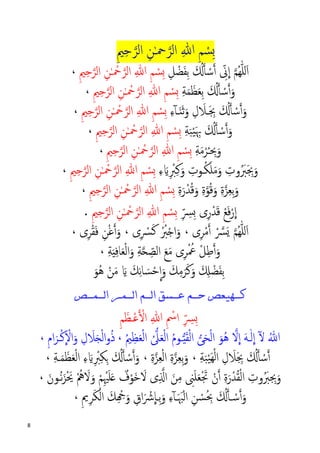 بِسْمِ اللهِ الرَّحْمٰنِ الرَّحِيمِ
اَللّٰهُمَّ إِنِّى أَسْأَلُكَ بِفَضْلِ بِسْمِ اللهِ الرَّحْمٰنِ الرَّحِيمِ ،
وَأَسْأَلُكَ بِعَظَمَةِ بِسْمِ اللهِ الرَّحْمٰنِ الرَّحِيمِ ،
وَأَسْأَلُكَ بِجَلَالِ وَثَنَآءِ بِسْمِ اللهِ الرَّحْمٰنِ الرَّحِيمِ ،
وَأَسْأَلُكَ بِهَيْبَةِ بِسْمِ اللهِ الرَّحْمٰنِ الرَّحِيمِ ،
وَبِحُرْمَةِ بِسْمِ اللهِ الرَّحْمٰنِ الرَّحِيمِ ،
وَبِجَبَرُوتِ وَمَلَكُوتِ وَكِبْرِيَاءِ بِسْمِ اللهِ الرَّحْمٰنِ الرَّحِيمِ ،
وَبِعِزَّةِ وَقُوَّةِ وَقُدْرَةِ بِسْمِ اللهِ الرَّحْمٰنِ الرَّحِيمِ ،
إِرْفَعْ قَدْرِى بِسِرِّ بِسْمِ اللهِ الرَّحْمٰنِ الرَّحِيمِ .
اَللّٰهُمَّ يَسِّرْ أَمْرِى ، وَاجْبُرْ كَسْرِى ، وَأَغْنِ فَقْرِى ،
وَأَطِلْ عُمْرِى مَعَ الصِّحَّةِ وَالْعَافِيَةِ ،
بِفَضْلِكَ وَكَرَمِكَ وَإِحْسَانِكَ يَا مَنْ هُوَ
كـهيعص حـم عـسق الـم الـمر الـمـص
بِسِرِّ اسْمِ اللهِ الْأَعْظَمِ
اللهُ لآ إِلٰـهَ إِلَّا هُوَ الْحَىُّ الْقَيُّـومُ الْعَلِىُّ الْعَظِيْمُ ، ذُوالْجَلَالِ وَالْإِكْـرَامِ ،
أَسْأَلُكَ بِجَلَالِ الْهَيْبَةِ ، وَبِعِزَّةِ الْعِزَّةِ ، وَأَسْأَلُكَ بِكِبْرِيَاءِ الْعَظَمَـةِ ،
وَبِجَبَرُوتِ الْقُدْرَةِ أَنْ تَجْعَلَنِى مِنَ الَّذِى لَاخَوْفٌ عَلَيْهِمْ وَلَاهُمْ يَحْزَنُـونَ ،
وَأَسْأَلُكَ بِحُسْنِ الْبَهَـآءِ وَبِـإِشْرَاقِ وَجْهِكَ الْكَرِيمِ ،
8